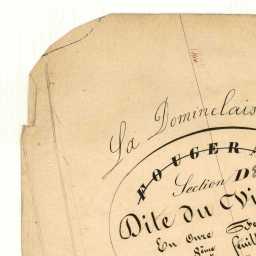 La Dominelais
FOUGERA
Section D
Dite du Vi
En Onze
feuil